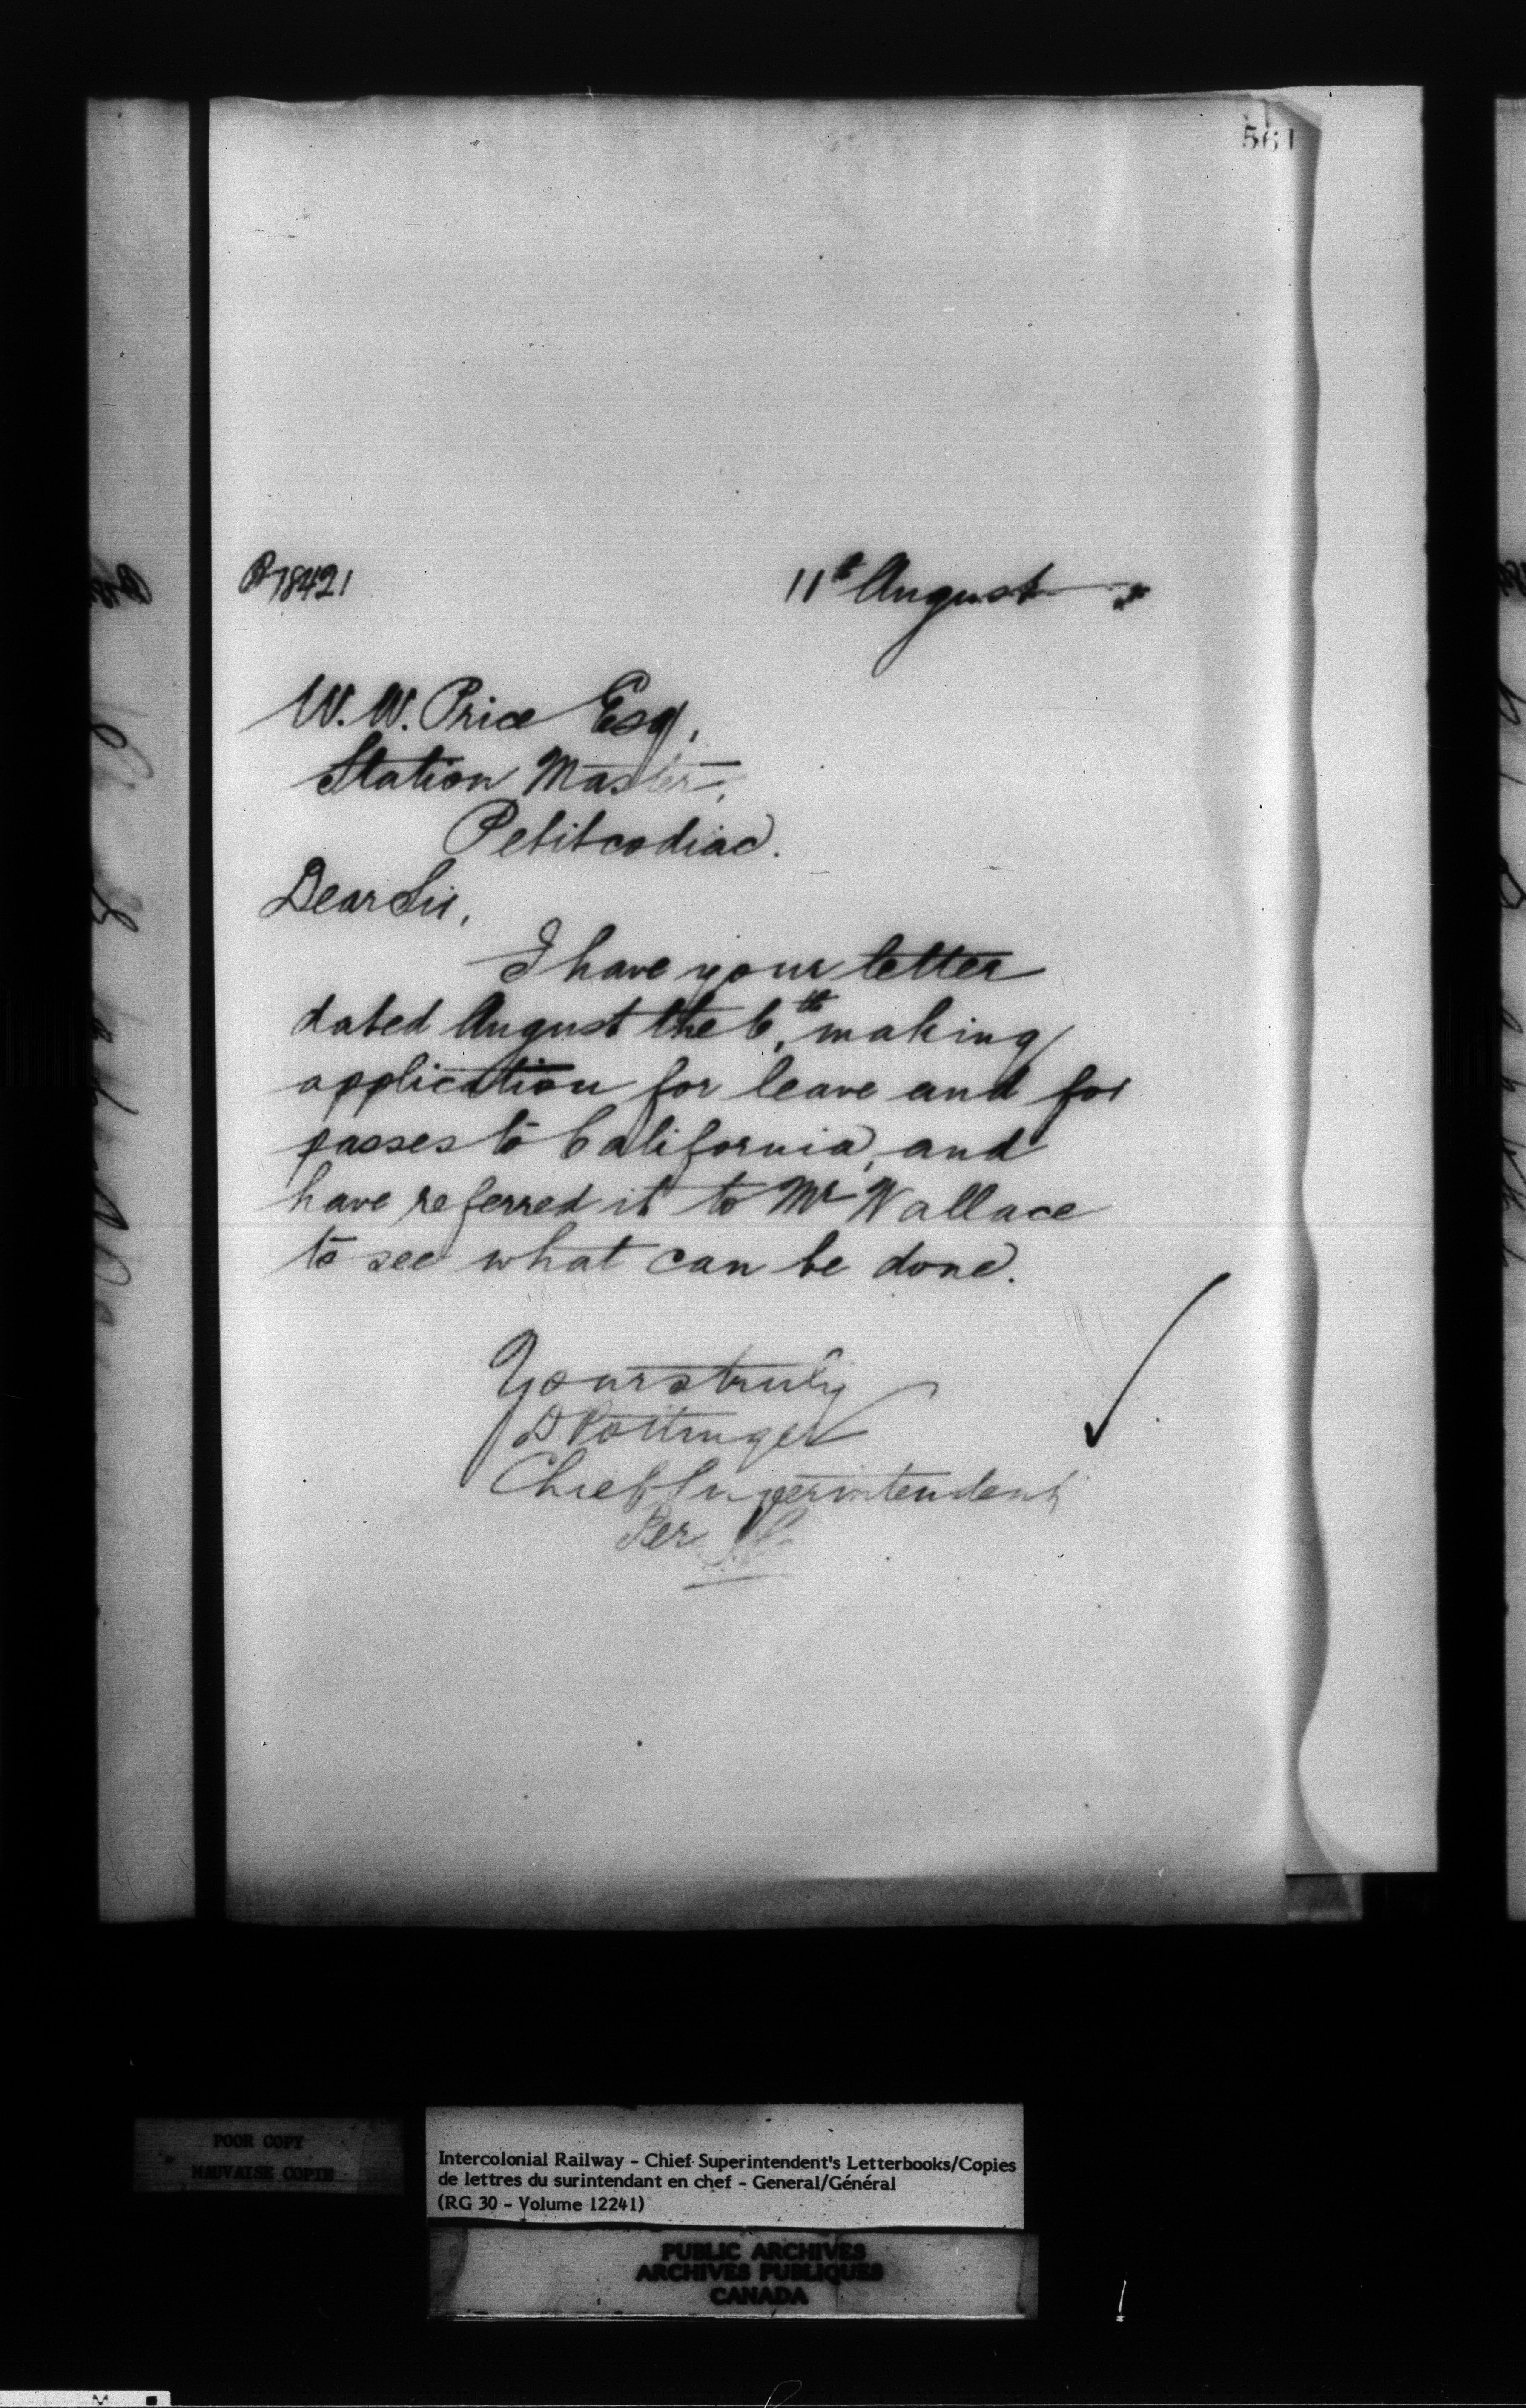 561
P78421
11th August
W. W. Price Esq,
Station Master,
Petitcodiac.
Dear Sir,
I have your letter
dated August the 6th, making
application for leave and for
passes to California, and
have referred it to Mr Wallace
to see what can be done.
Yours truly
D Pottinger
Chief Superintendent
Per
POOR COPY
MAUVAISE COPIE
Intercolonial Railway - Chief Superintendent's Letterbooks/Copies
de lettres du surintendant en chef - General/Général
(RG 30 - Volume 12241)
PUBLIC ARCHIVES
ARCHIVES PUBLIQUES
CANADA